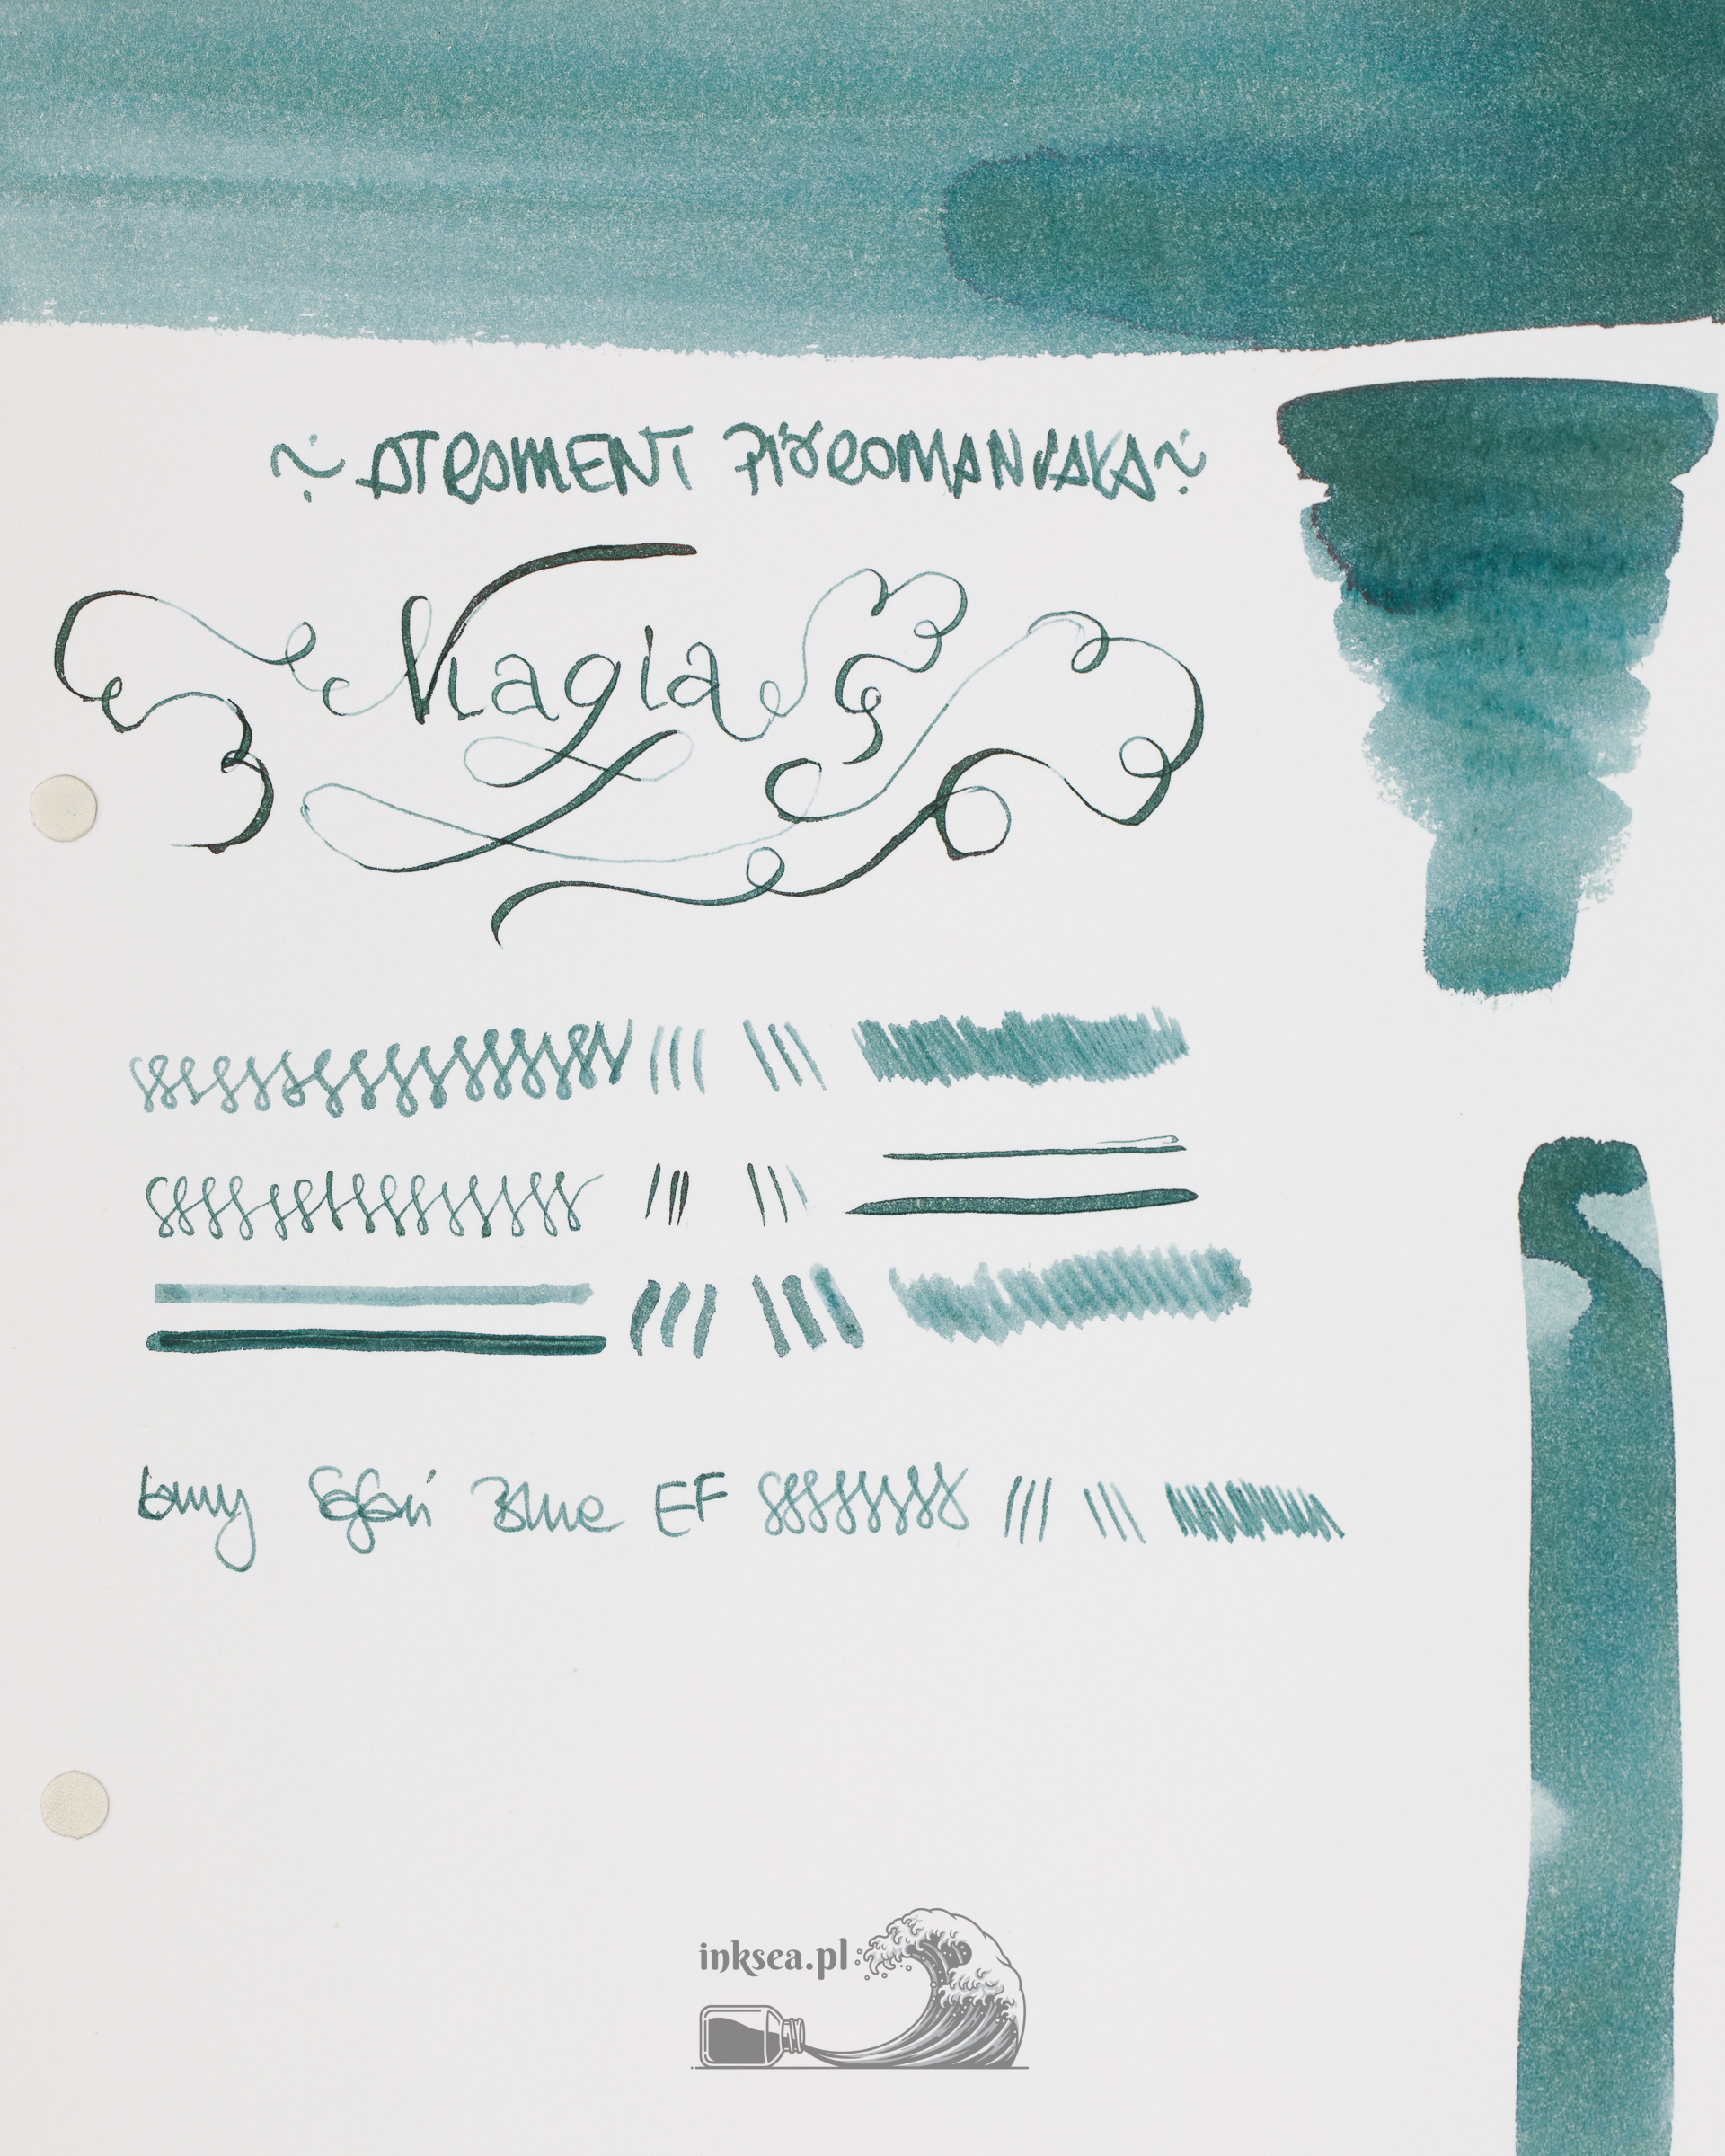 ~ ATRAMENT PIÓROMANIAKA ~
Magia
Lamy Safari Blue EF
inksea.pl